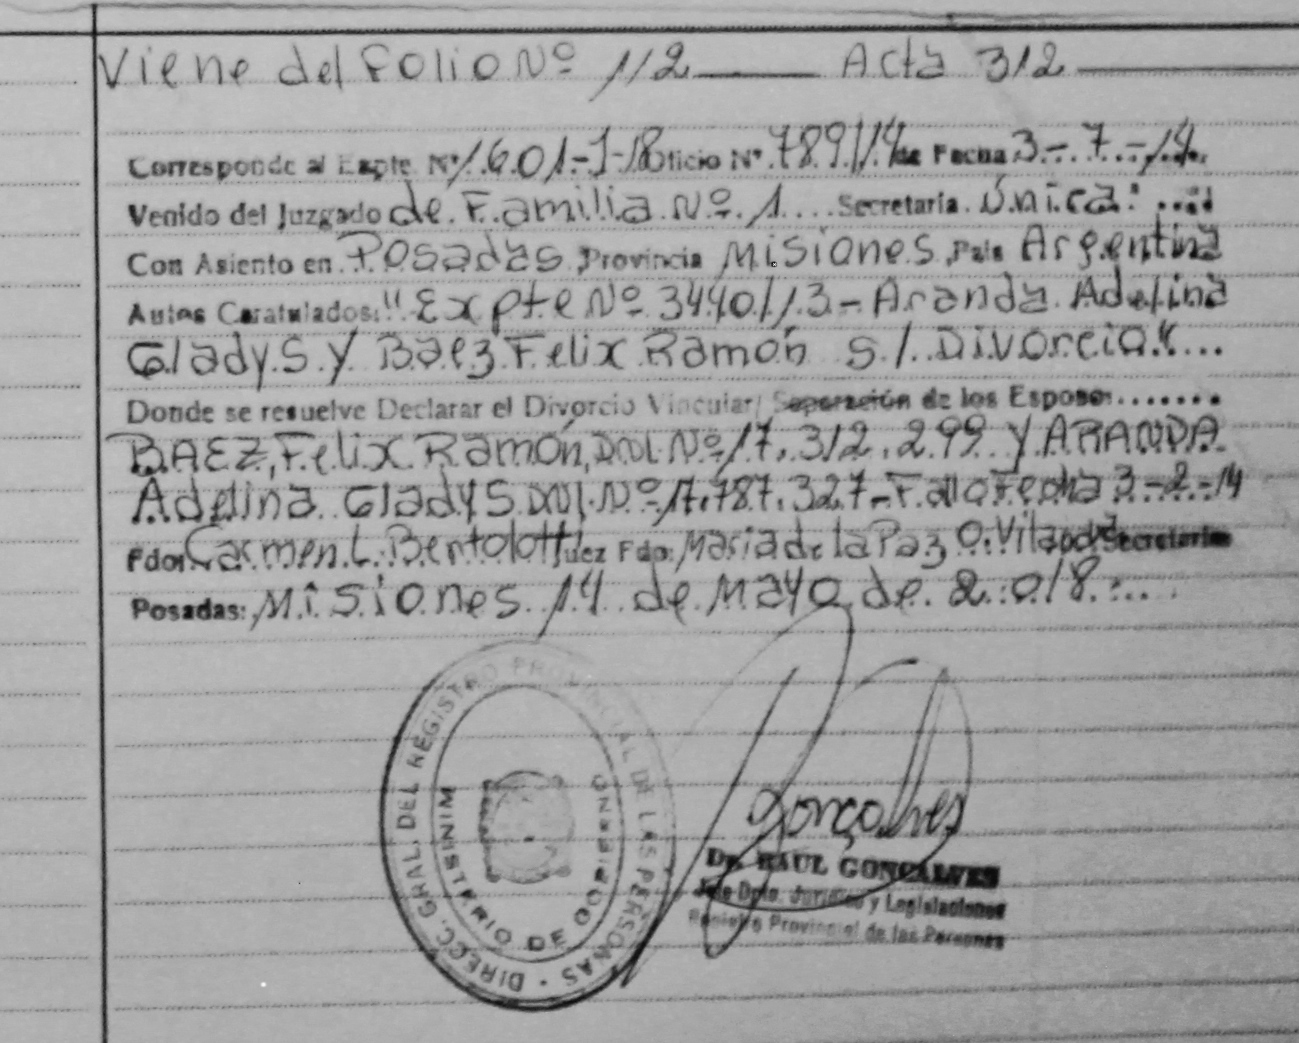 Viene del Folio Nº 112 Acta 312
Corresponde al Expte. Nº 1.601-J-18 Oficio Nº 789/14 de Fecha 3-7-14.
Venido del Juzgado de Familia Nº 1.... Secretaria. Única: ....
Con Asiento en Posadas, Provincia Misiones, Pais Argentina
Autos Caratulados: "Expte Nº 3440/13 - Aranda Adelina
Gladys y Baez Felix Ramón s/. Divorcio."...
Donde se resuelve Declarar el Divorcio Vincular/ Separación de los Esposos.......
BAEZ, Felix Ramón, DNI. Nº 17.312.299 y ARANDA
Adelina Gladys DNI. Nº 17.787.327 - Fallo Fecha 3-2-14
Fdo: Carmen L. Bertolotti Juez Fdo: Maria de la Paz O. Secretaria
Posadas: Misiones 14 de Mayo de 2.018.:...
DIRECC. GRAL. DEL REGISTRO PROVINCIAL DE LAS PERSONAS -
MINISTERIO DE GOBIERNO
Gonçalves
Dr. RAUL GONÇALVES
Jefe Dpto. Jurídico y Legislaciones
Registro Provincial de las Personas